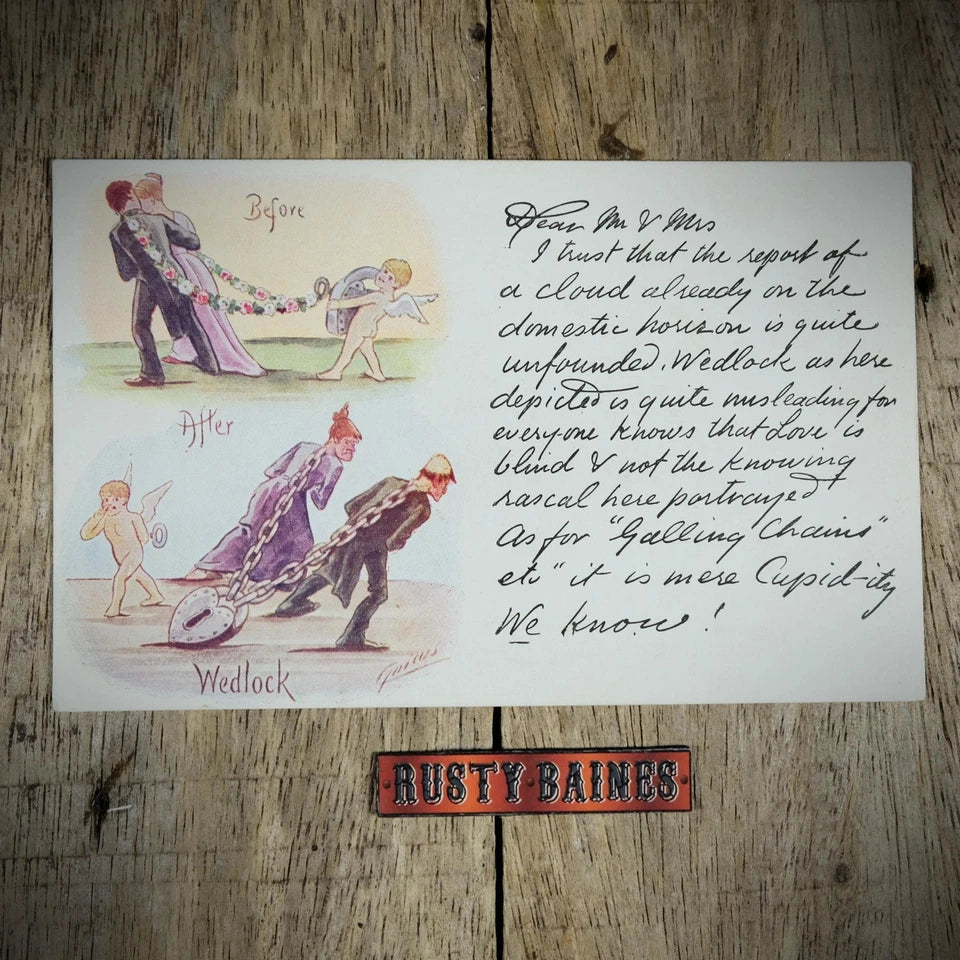 Before
After
Wedlock
Dear Mr & Mrs
I trust that the report of
a cloud already on the
domestic horizon is quite
unfounded. Wedlock as here
depicted is quite misleading for
everyone knows that Love is
blind & not the knowing
rascal here portrayed
As for "Galling Chains"
etc" it is mere Cupid-ity
We know!
RUSTY BAINES